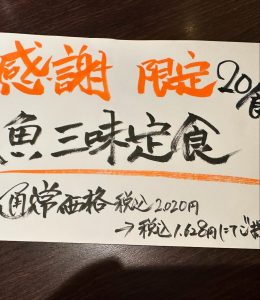 感謝 限定 20食
魚三味定食
通常価格 税込2020円
→税込1.628円にてご